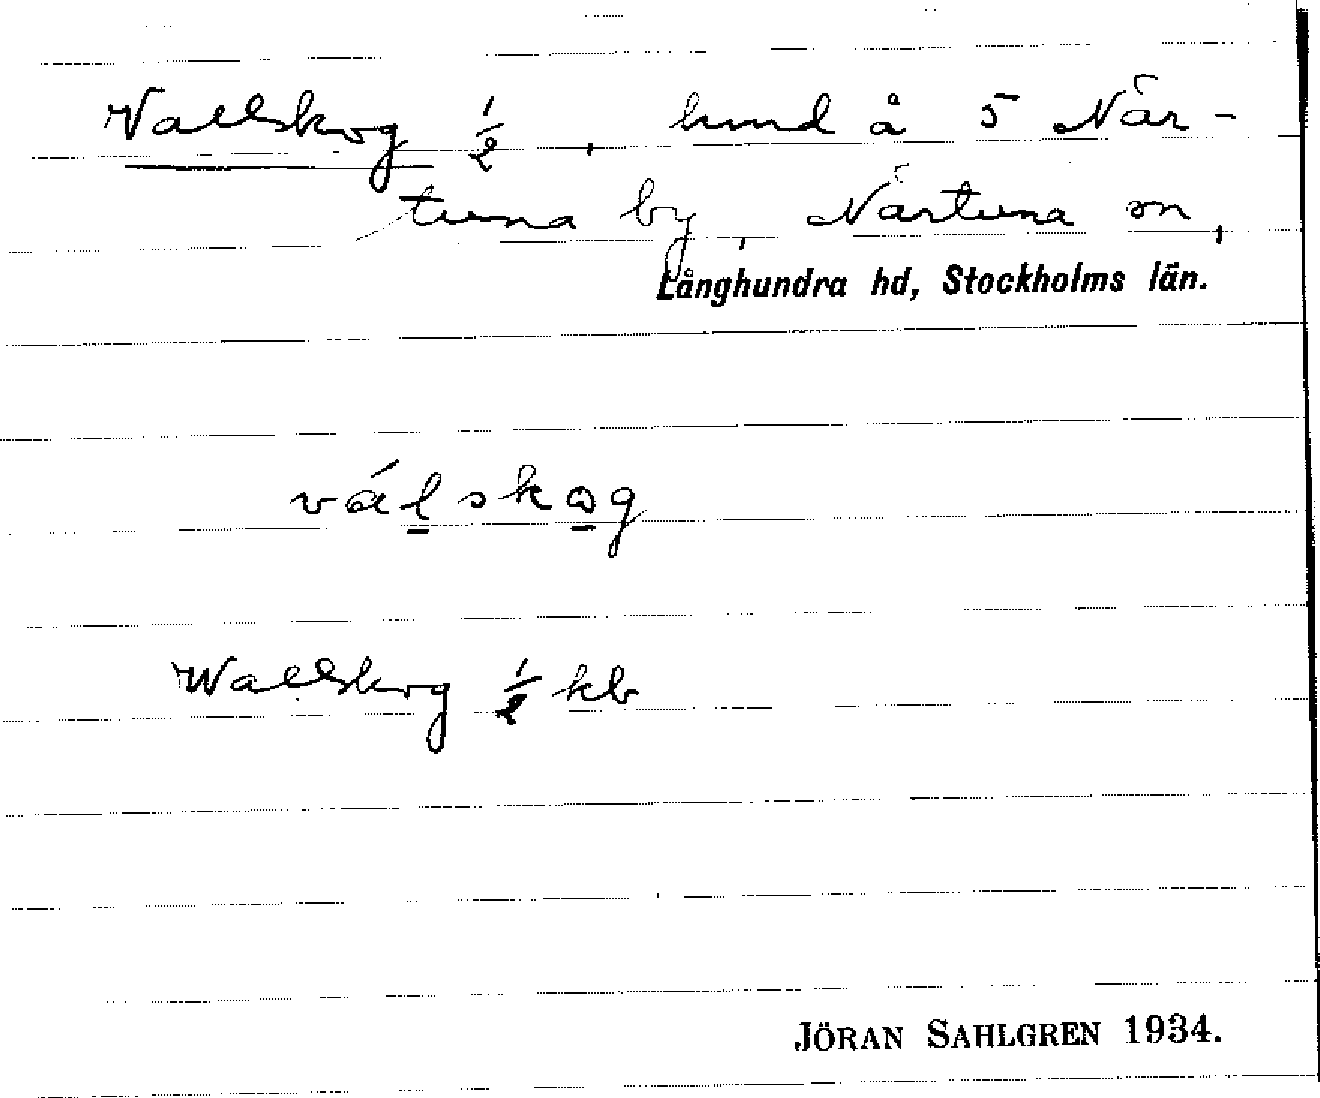 Wallskog 1/2, hmd å 5 När-
tuna by, Närtuna sn,
Långhundra hd, Stockholms län.
válskog
Wallskog 1/2 kb
JÖRAN SAHLGREN 1934.